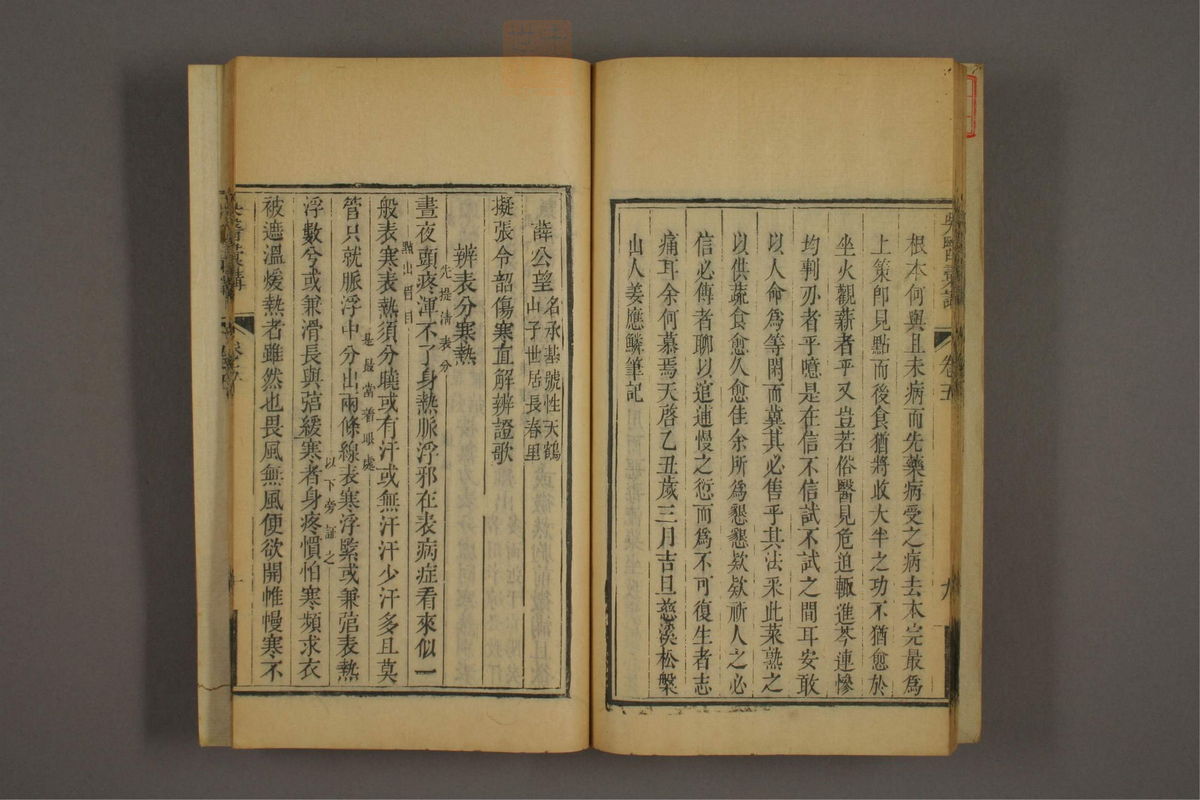 根本何與且未病而先藥病受之病去本完最為
上策卽見點而後食猶將收大半之功不猶愈於
坐火觀薪者乎又豈若俗醫見危迫輒進芩連慘
均剚刃者乎噫是在信不信試不試之間耳安敢
以人命為等閑而冀其必售乎其法釆此菜熟之
以供蔬食愈久愈佳余所為懇懇欵欵祈人之必
信必傳者聊以逭逋慢之愆而為不可復生者志
痛耳余何慕焉天啓乙丑歲三月吉旦慈溪松槃
山人姜應鱗筆記
吳醫彙講
卷五
九
薛公望
名承基號性天鶴
山子世居長春里
擬張令韶傷寒直解辨證歌
辨表分寒熱
先提清表分
晝夜頭疼渾不了身熱脈浮邪在表病症看來似一
點出眉目
般表寒表熱須分曉或有汗或無汗汗少汗多且莫
是最當着眼處
管只就脈浮中分出兩條線表寒浮緊或兼弦表熱
以下旁証之
浮數兮或兼滑長與弦緩寒者身疼慣怕寒頻求衣
被遮溫煖熱者雖然也畏風無風便欲開帷幔寒不
吳醫彙講
一